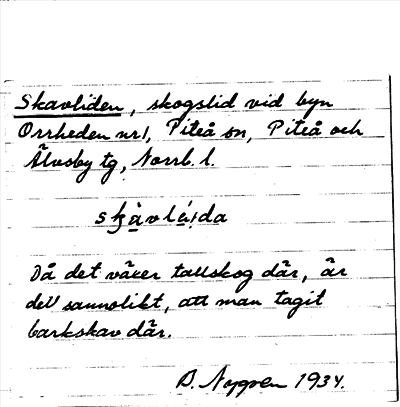 Skavliden, skogslid vid byn
Orrheden nr 1, Piteå sn, Piteå och
Älvsby tg, Norrb. l.
skàvlá;da
Då det växer tallskog där, är
det sannolikt, att man tagit
barkskav där.
1934.